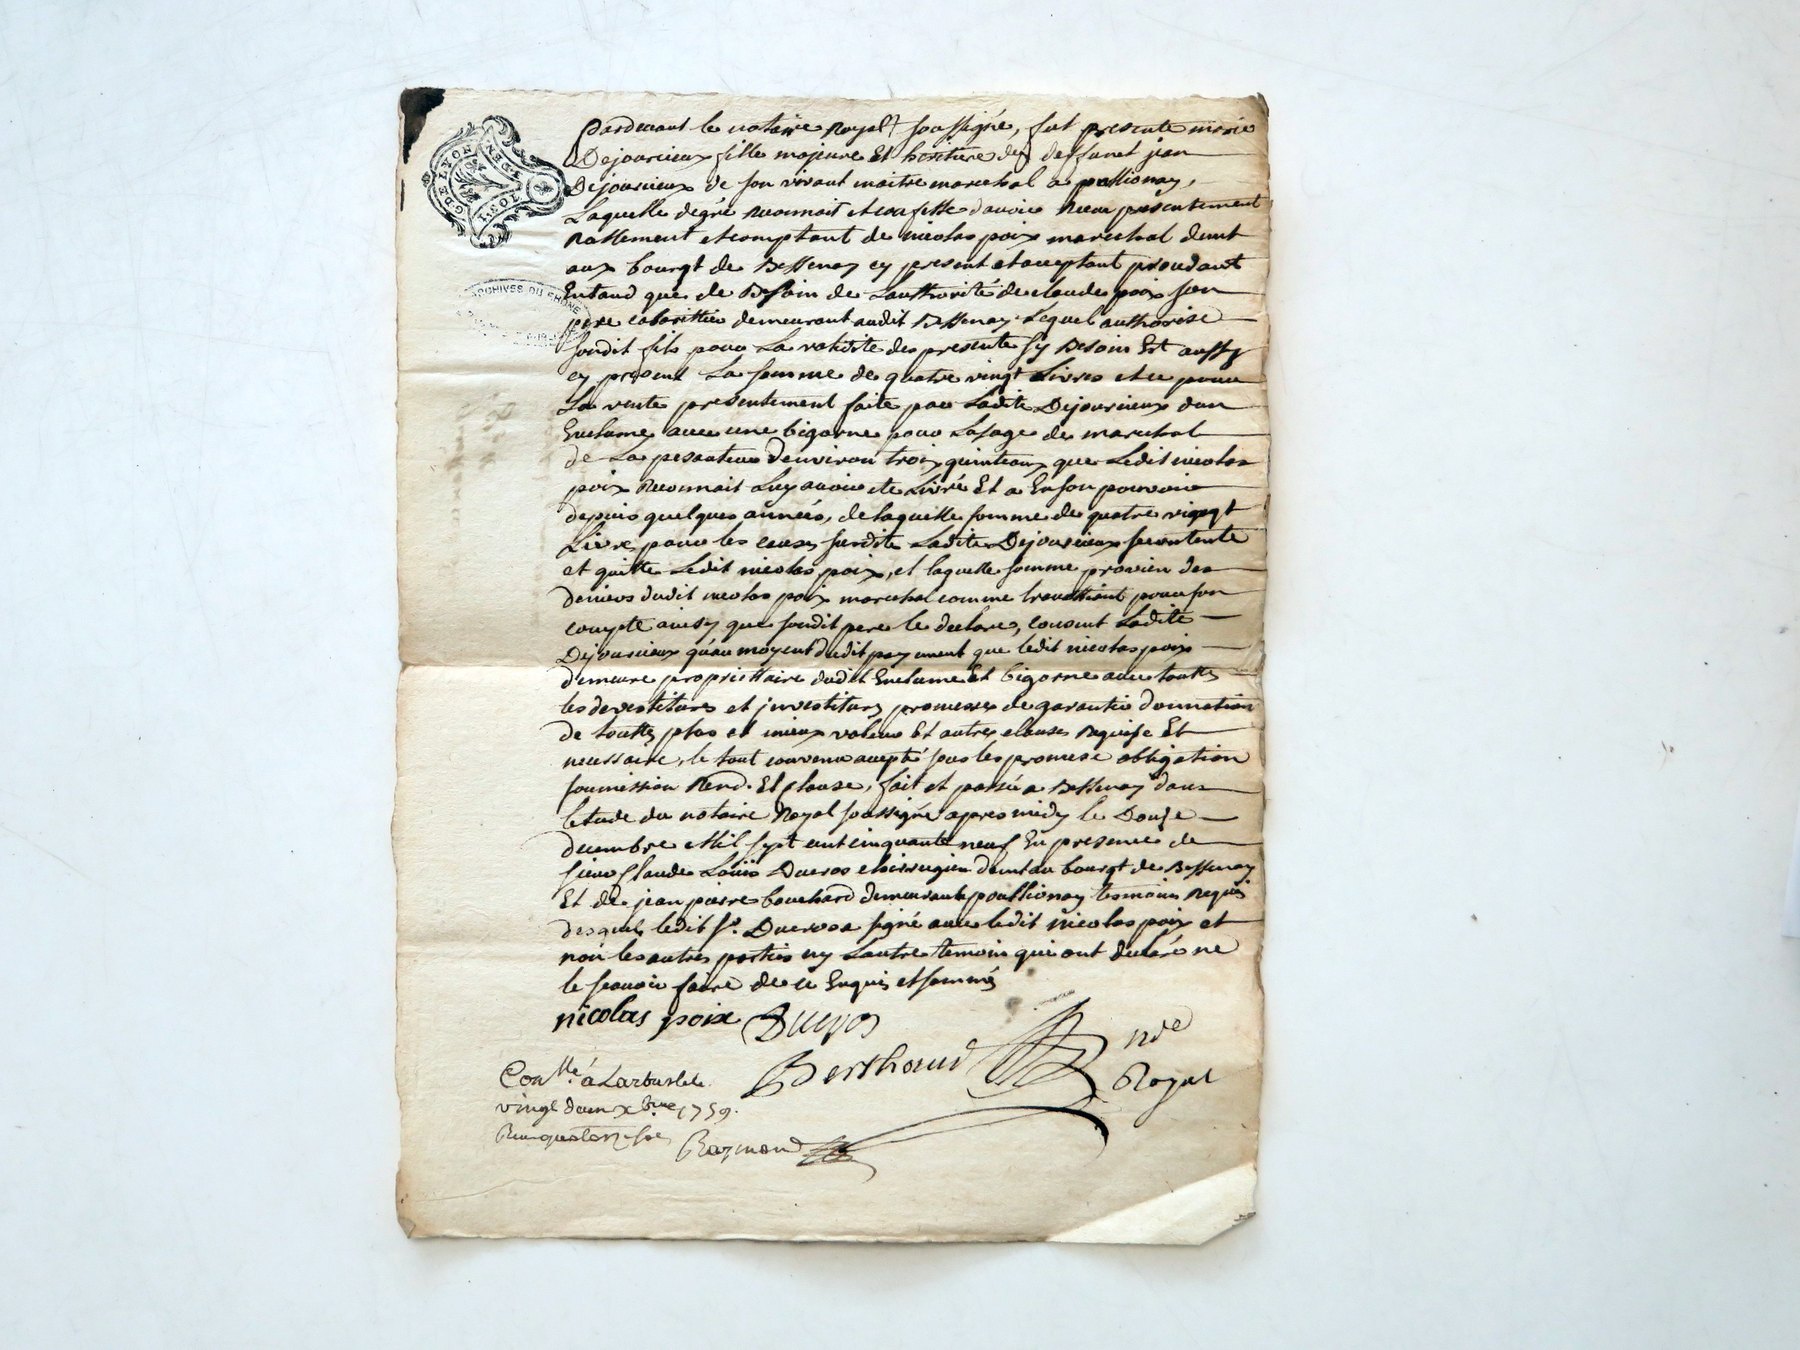 G. DE LYON
ARCHIVES DU RHONE
Pardevant le notaire Royal soussigné, fut presente marie
Dejoursieux fille majeure Et heritiere de deffunct jean
Dejoursieux de son vivant maitre marechal a pollionay,
Laquelle de gré reconnoit et confesse d'avoir Receu presentement
Reellement et comptant de nicolas poix marechal demt
aux bourgt de Bessenay cy present et acceptant procedant
Entand que de Besoin de Lauthorité de claude poix son
pere cabarettier demeurant audit Bessenay Lequel authorise
sondit fils pour La validite des presente sy Besoin Est aussy
cy present La somme de quatre vingt Livres et ce pour
La vente presentement faite par Ladite Dejoursieux dun
Enclume avec une bigorne pour Lusage de marechal
de La pesanteur denviron trois quinteaux que Ledit nicolas
poix Reconnoit Luy avoir ete Livré Et a En son pouvoir
depuis quelques années, de laquelle somme de quatre vingt
Livres pour les causes susdite Ladite Dejoursieux se contente
et quitte Ledit nicolas poix, et laquelle somme provien des
deniers dudit nicolas poix marechal comme travaillant pour son
compte ainsy que sondit pere le declare, consent Ladite
Dejoursieux qu'au moyent dudit payement que ledit nicolas poix
demeure propriettaire dudit Enclume Et bigorne avec touttes
les devestitures et investitures promesses de garantie donnation
de touttes plus et mieux values Et autres clauses Requise Et
necessaire, le tout convenu accepté par les promesse obligation
soumission Rend. Et clause, fait et passé a Bessenay dans
letude du notaire Royal soussigné apres midy le Douze
decembre Mil sept cent cinquante neuf En presence de
sieur Claude Loüis Ducros chirurgien demt au bourgt de Bessenay
Et de jean pierre bouchard demeurant a pollionay temoins Requis
desquels ledit Sr. Ducros a signé avec ledit nicolas poix et
non les autres parties ny Lautre temoin qui ont declaré ne
le scavoir faire de ce Enquis et sommés
nicolas poix Ducros
Berthaud nre
Royal
Conlle. á Larbresle
vingt deux xbre 1759.
Raymond